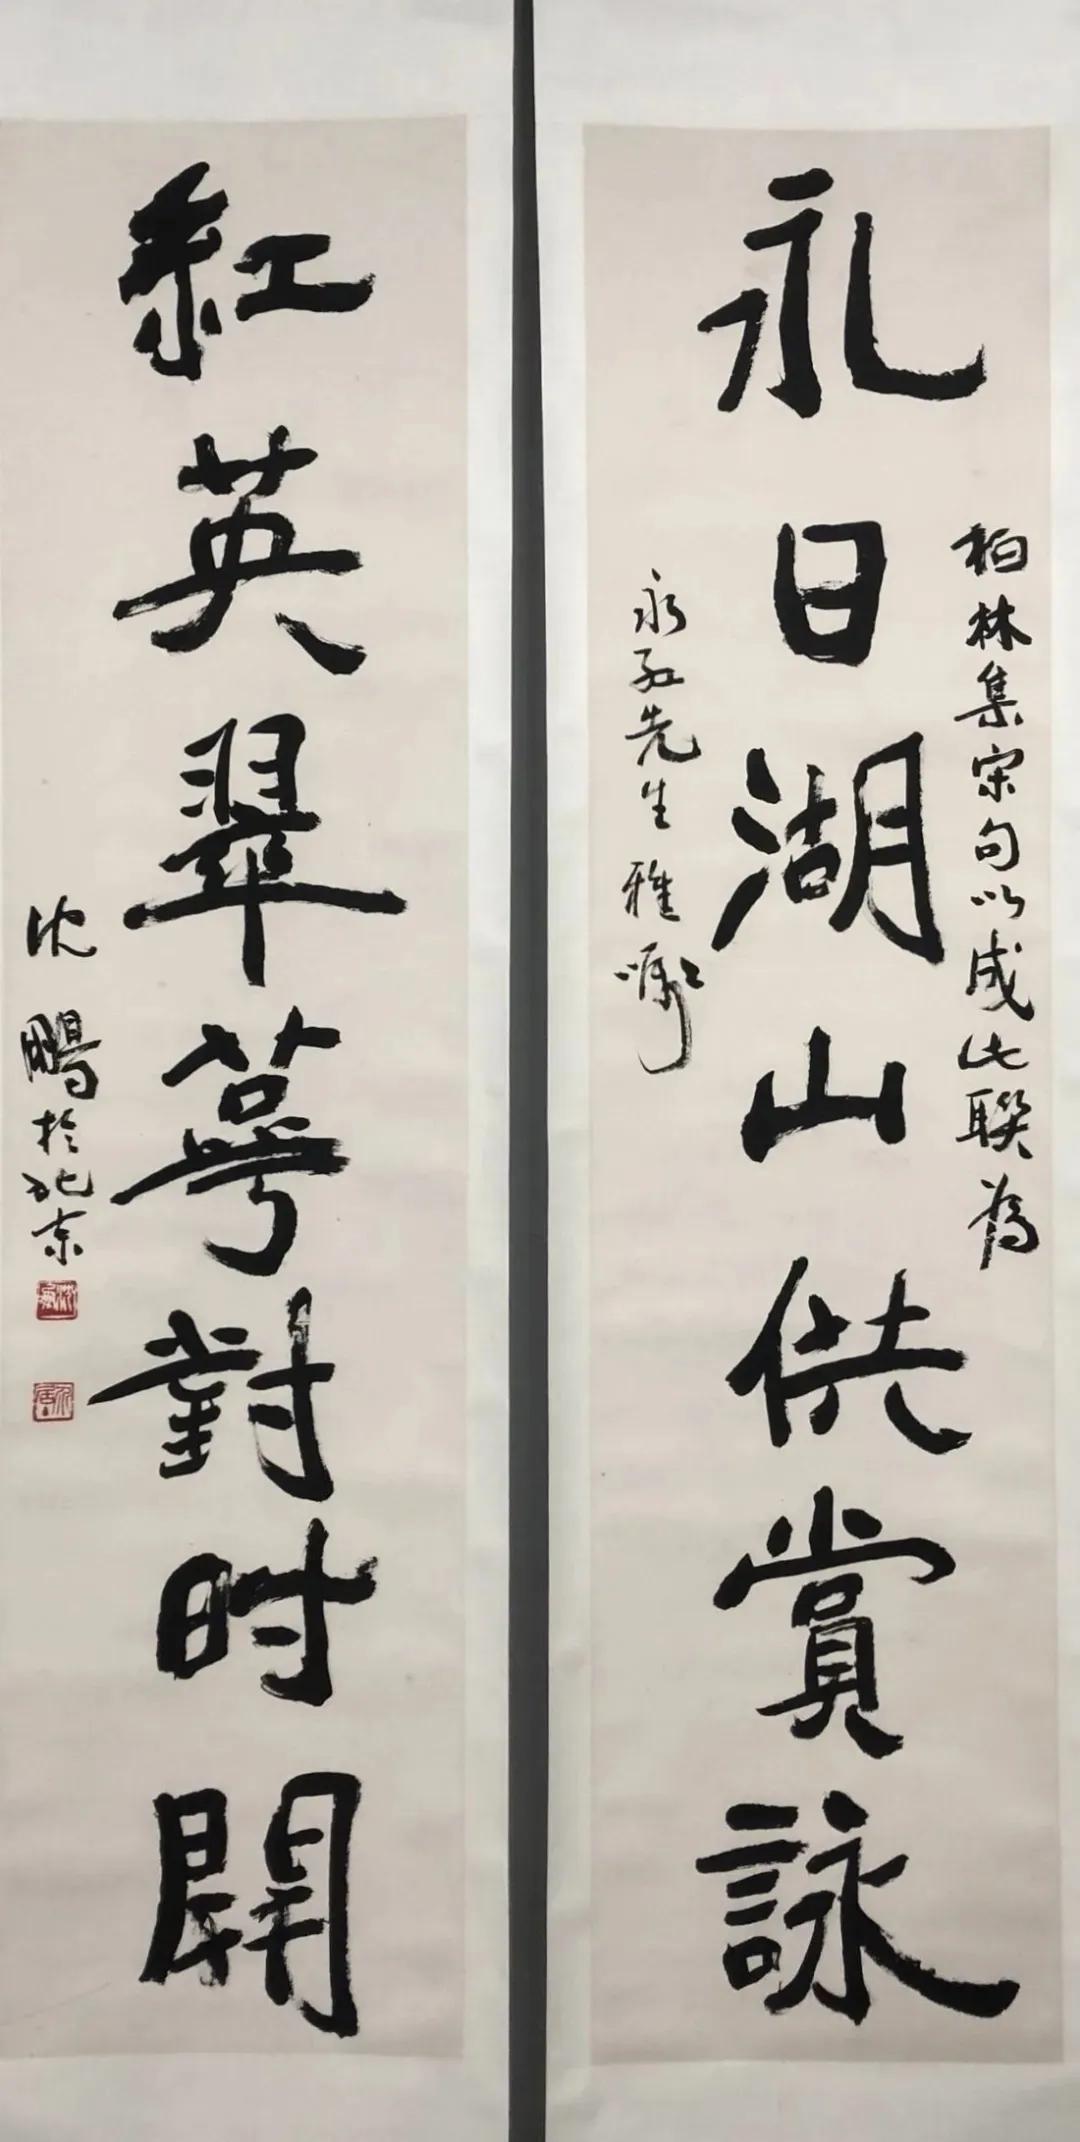 柏林集宋句以成此聯為
永日湖山供賞詠
永红先生雅嘱
紅英翠萼對时開
沈鵬於北京